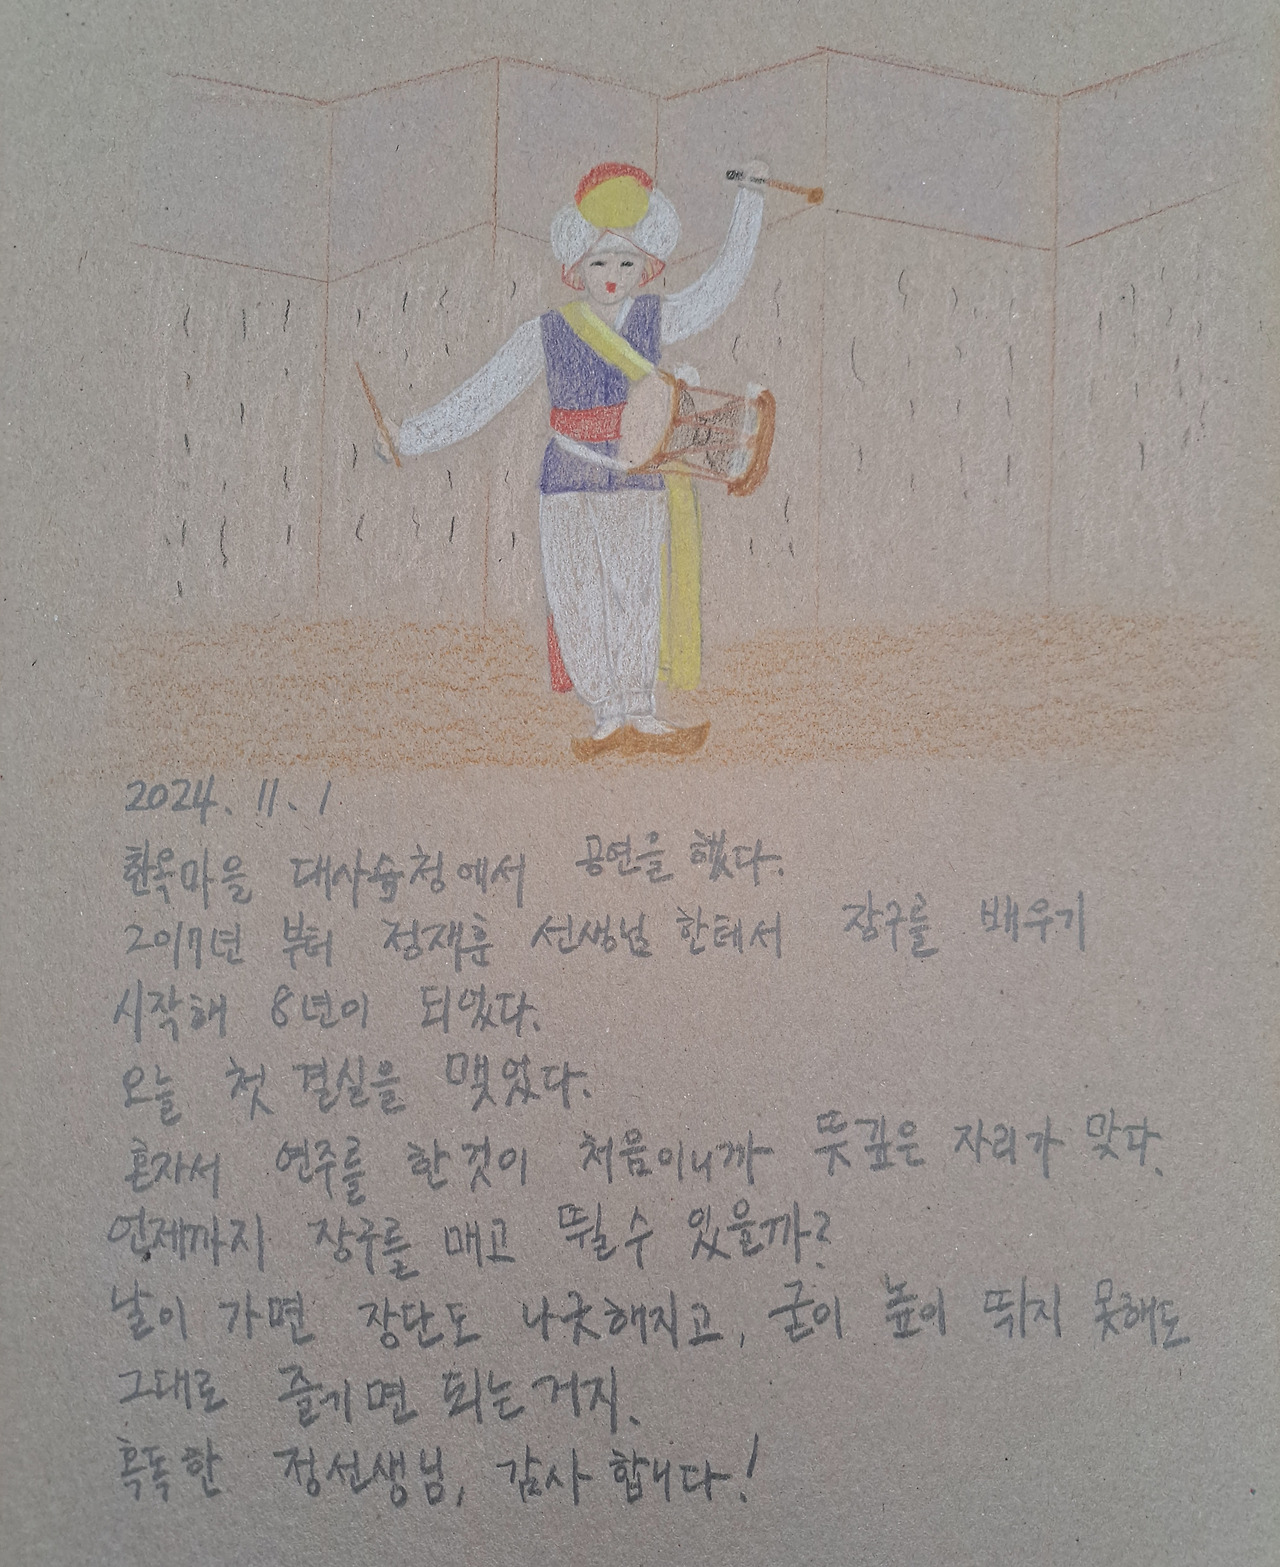 2024. 11. 1
한옥마을 대사습청에서 공연을 했다.
2017년 부터 정재훈 선생님 한테서 장구를 배우기
시작해 8년이 되었다.
오늘 첫 결실을 맺었다.
혼자서 연주를 한것이 처음이니까 뜻깊은 자리가 맞다.
언제까지 장구를 매고 뛸 수 있을까?
날이 가면 장단도 나긋해지고, 굳이 높이 뛰지 못해도
그대로 즐기면 되는거지.
혹독한 정선생님, 감사합니다!